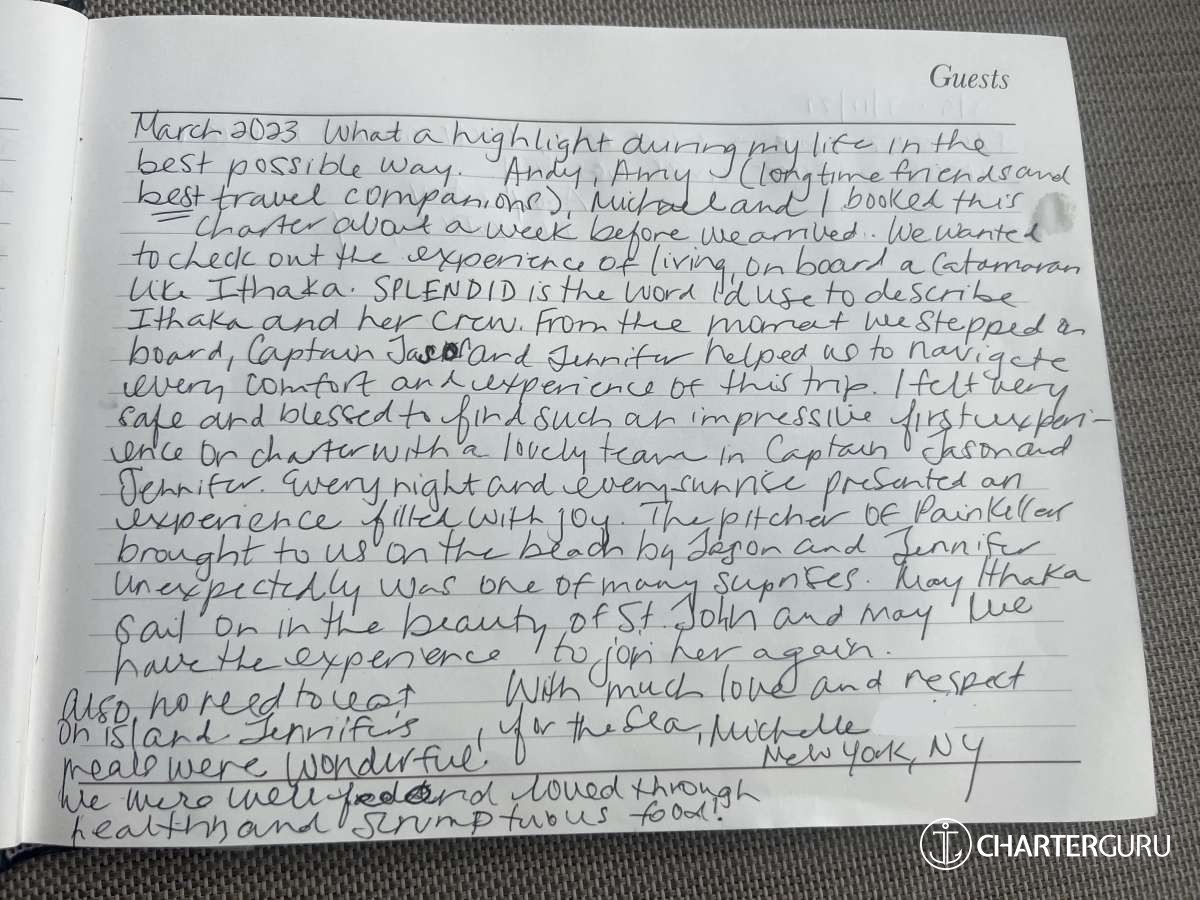 Guests
March 2023 What a highlight during my life in the
best possible way. Andy, Amy (longtime friends and
best travel companions), Michael and I booked this
charter about a week before we arrived. We wanted
to check out the experience of living on board a Catamaran
like Ithaka. SPLENDID is the word I'd use to describe
Ithaka and her crew. From the moment we stepped on
board, Captain Jason and Jennifer helped us to navigate
every comfort and experience of this trip. I felt very
safe and blessed to find such an impressive first experi-
ence on charter with a lovely team in Captain Jason and
Jennifer. Every night and every sunrise presented an
experience filled with joy. The pitcher of Painkillers
brought to us on the beach by Jason and Jennifer
unexpectedly was one of many suprises. May Ithaka
sail on in the beauty of St. John and may we
have the experience to join her again.
With much love and respect
for the Sea, Michelle
New York, NY
Also, no need to eat
on island Jennifer's
meals were wonderful!
We were well fed and loved through
healthy and scrumptuous food!
CHARTERGURU